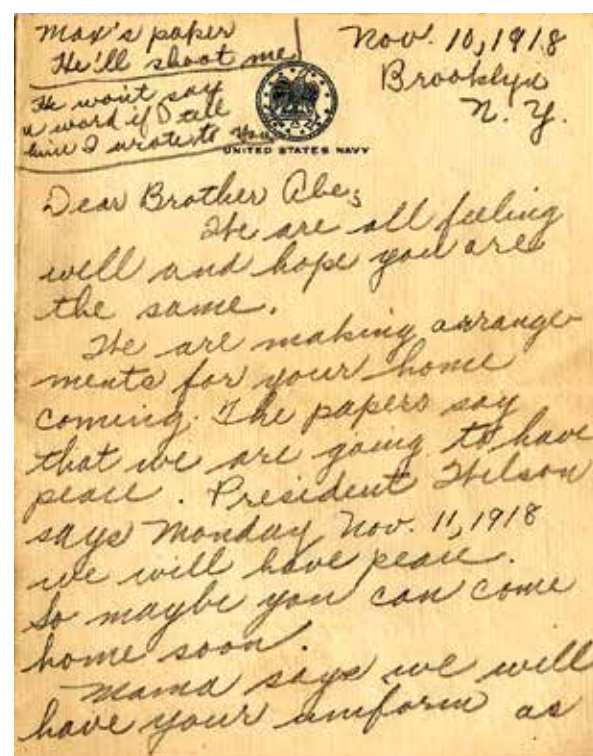 Max's paper
He'll shoot me
He won't say
a word if I tell
him I wrote to you
Nov. 10, 1918
Brooklyn
N. Y.
UNITED STATES NAVY
Dear Brother Abe;
We are all feeling
well and hope you are
the same.
We are making arrange-
ments for your home
coming. The papers say
that we are going to have
peace. President Wilson
says Monday Nov. 11, 1918
we will have peace.
So maybe you can come
home soon.
Mama says we will
have your uniform as